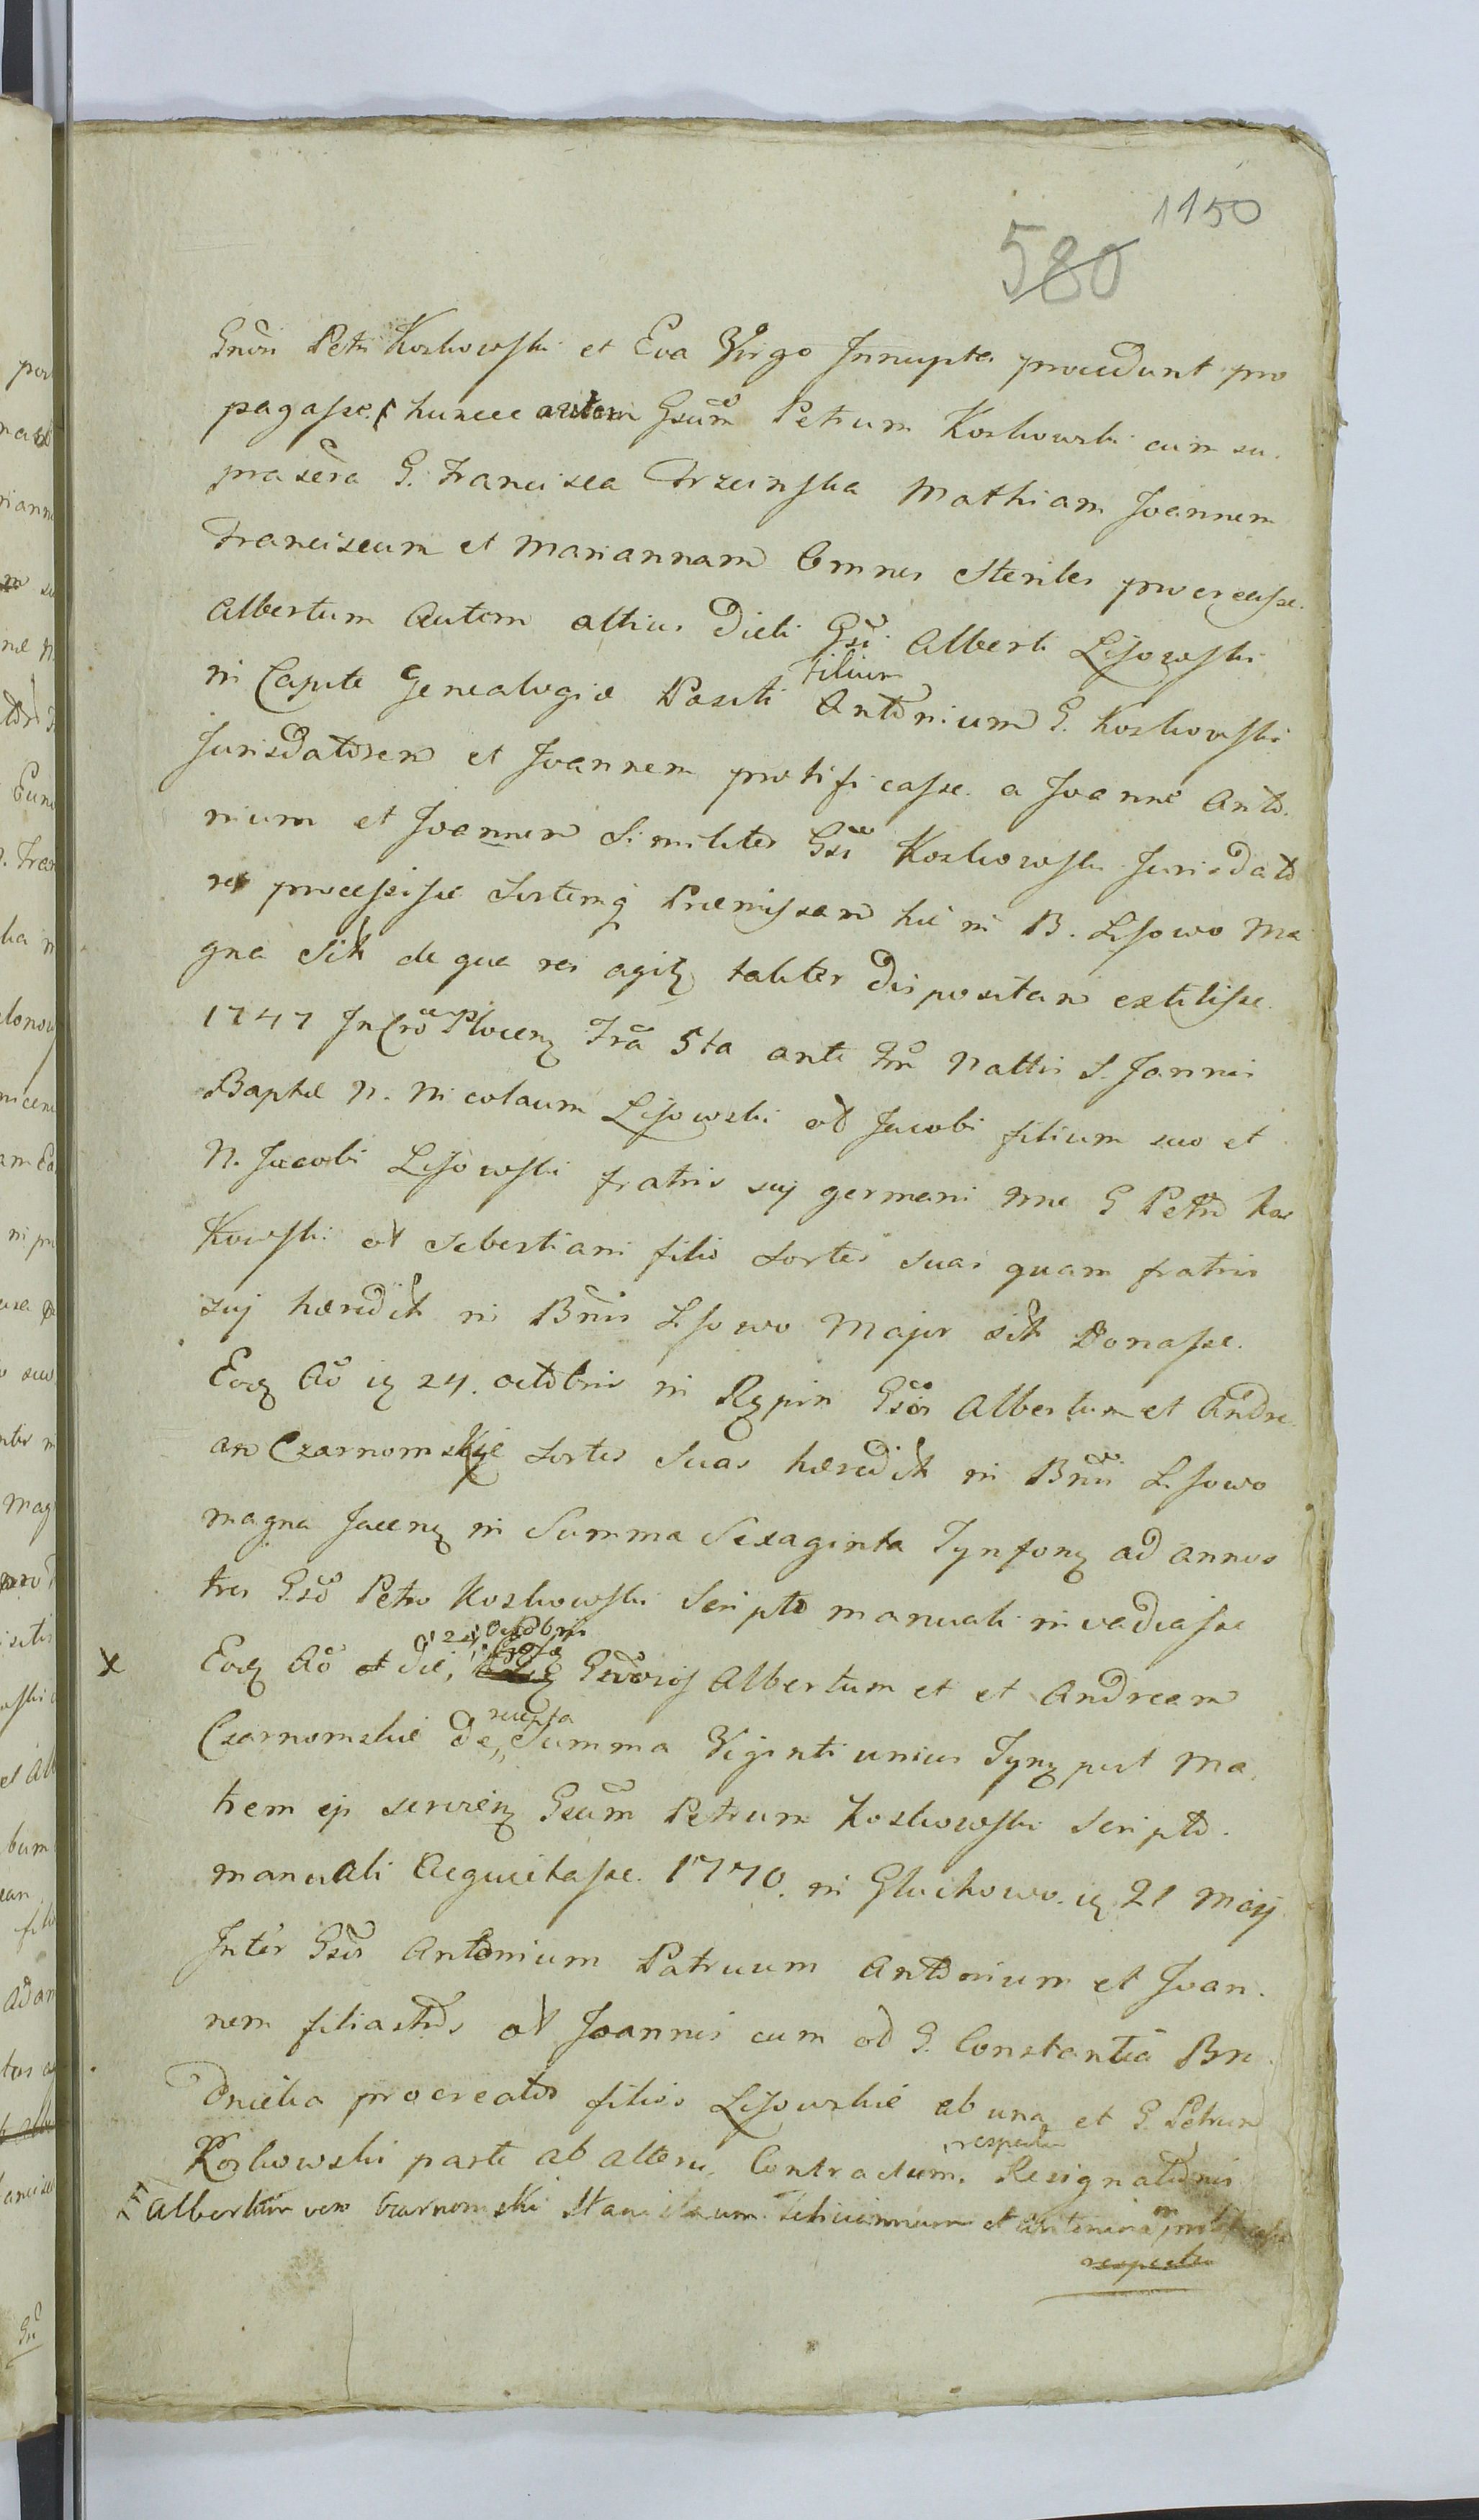 1150
580
Gnõri Petri Koskowski et Eva Virgo Innupta procedunt pro
pagasse. hunccce autem Gsum Petrum Koskowski cum su
prascra G. Francisca Trzcinska Mathiam Joannem
Franciscum et Mariannam Omnes Steriles procreasse.
Albertum Autem altius Dicti Gsi Alberti Lisowski
in Capite Genealogiæ Positi filium Antonium G. Koskowski
Jurisdatorem et Joannem prolificasse. a Joanne Anto
nium et Joannem Similiter Gsi Koskowski Jurisdato
res processisse Sortemq Præmissam hic in B. Lisowo Ma
gna Sit de qua res agitq taliter dispositam extitisse.
1747 In Cro Plocenq Fra 5ta ante Fm Nattis S. Joannis
Baptæ N. Nicolaum Lisowski ol Jacobi filium suo et
N. Jacobi Lisowski fratris suj germani nne G Petro Kos
Kowski ol Sebastiani filio Sortes suas quam fratris
suj hæredit in Bnis Lisowo Major sit Donasse.
Eodq Aõ iq 24. octobris in Rypin Gsõs Albertum et Andre
am Czarnomskie Sortes Suas hæredit in Bnis Lisowo
magna Jacenq in Summa Sexaginta Tynfonq ad annos
tres Gsõ Petro Koskowski Scripto manuali invadiasse
x Eodq Aõ et die, 24 Octobris Gsosq Albertum et et Andream
Czarnomskie de recepta Summa Viginti unius Tynq post Ma
trem ej servienq Gsum Petrum Koskowski Scripto
manuali Acquietasse. 1770. in Gluchowo. iq 21 Maij
Inter Gsõs Antonium Patruum Antonium et Joan
nem filiastros ol Joannis cum ol G. Constantia Bro
dnicka procreatos filios Lisowskie ab una et G. Petrum
Koskowski parte ab altera, Contractum, respectu Resignationis
Albertum vero Czarnomski Stanislaum Felicianum et Antoninam
respectu